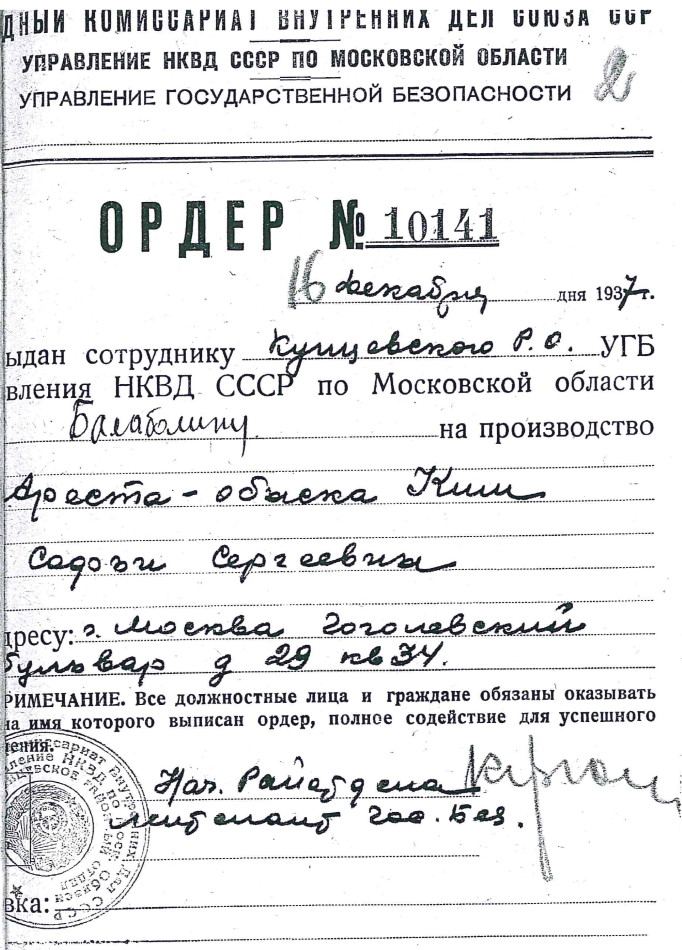 ДНЫЙ КОМИССАРИАТ ВНУТРЕННИХ ДЕЛ СОЮЗА ССР
УПРАВЛЕНИЕ НКВД СССР ПО МОСКОВСКОЙ ОБЛАСТИ
УПРАВЛЕНИЕ ГОСУДАРСТВЕННОЙ БЕЗОПАСНОСТИ
2
ОРДЕР № 10141
16 декабря дня 1937 г.
ыдан сотруднику Кунцевского Р.О. УГБ
вления НКВД СССР по Московской области
Балаболину на производство
Ареста - обыска Ким
Садын Сергеевны
дресу: г. Москва Гоголевский
бульвар д 29 кв 34.
РИМЕЧАНИЕ. Все должностные лица и граждане обязаны оказывать
на имя которого выписан ордер, полное содействие для успешного
нения.
Нач. Райотдела
лейтенант гос. Без.
вка: